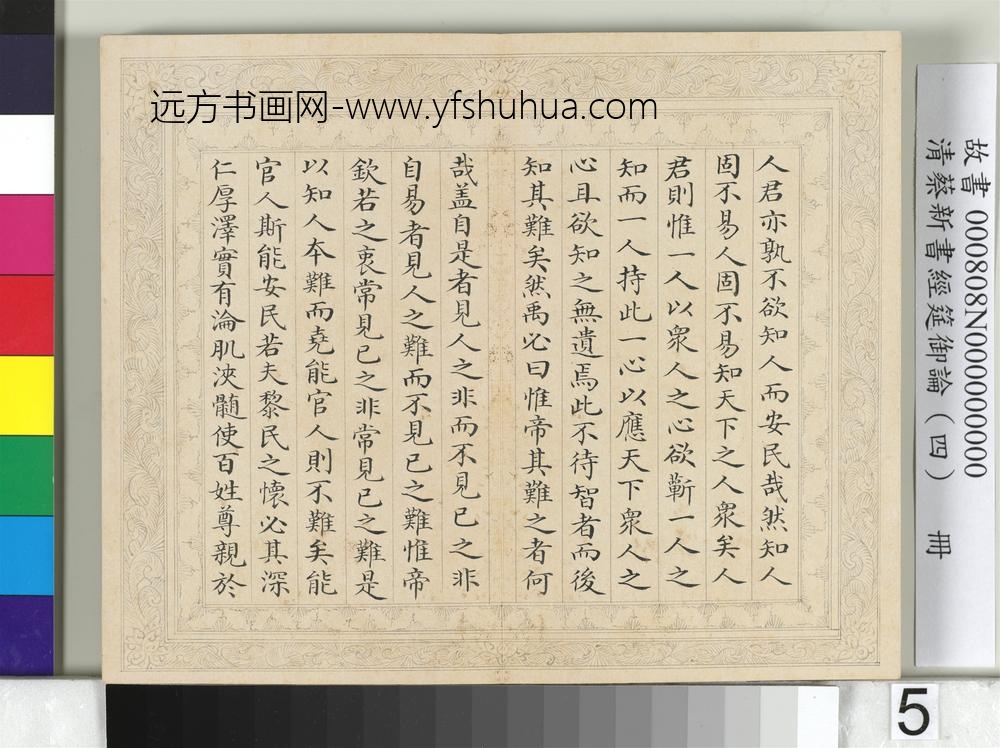 远方书画网-www.yfshuhua.com
人君亦孰不欲知人而安民哉然知人
固不易人固不易知天下之人衆矣人
君則惟一人以衆人之心欲蘄一人之
知而一人持此一心以應天下衆人之
心且欲知之無遺焉此不待智者而後
知其難矣然禹必曰惟帝其難之者何
哉盖自是者見人之非而不見已之非
自易者見人之難而不見已之難惟帝
欽若之衷常見已之非常見已之難是
以知人本難而堯能官人則不難矣能
官人斯能安民若夫黎民之懷必其深
仁厚澤實有淪肌浹髓使百姓尊親於
故書 000808N000000000
清蔡新書經筵御論(四) 冊
5